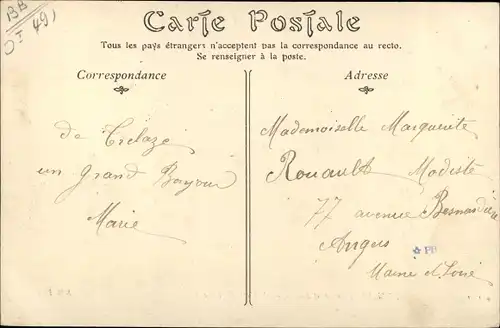 BB
(DT 49)
Carte Postale
Tous les pays étrangers n'acceptent pas la correspondance au recto.
Se renseigner à la poste.
Correspondance
de Trelazé
un Grand Bonjour
Marie
Adresse
Mademoiselle Marguerite
Rouault Modiste
77 avenue Besnardière
Angers
Maine et Loire